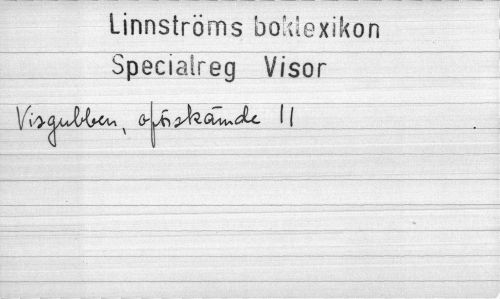 Linnströms boklexikon
Specialreg Visor
Visgubben, oförskämde II